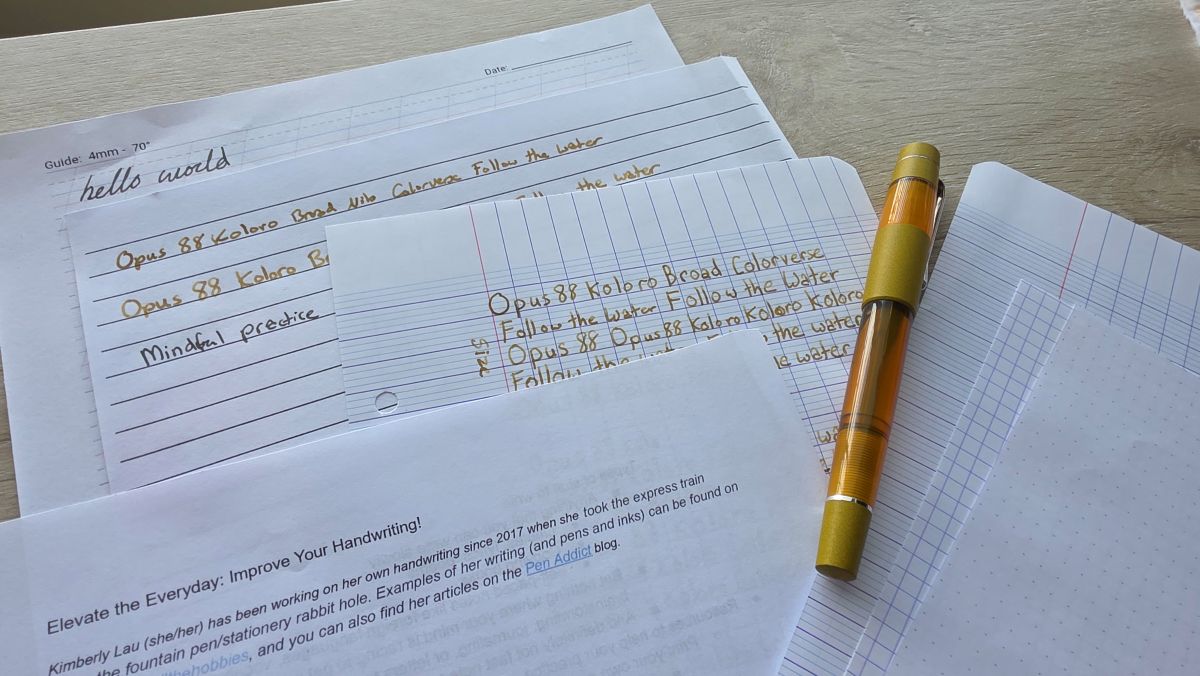 Date:
Guide: 4mm - 70°
hello world
Opus 88 Koloro Broad Nib Colorverse Follow the water
the water
Opus 88 Koloro
Mindful practice
Opus 88 Koloro Broad Colorverse
Follow the Water Follow the Water
Opus 88 Opus 88 Koloro Koloro Koloro
Follow the water
Elevate the Everyday: Improve Your Handwriting!
Kimberly Lau (she/her) has been working on her own handwriting since 2017 when she took the express train
the fountain pen/stationery rabbit hole. Examples of her writing (and pens and inks) can be found on
and you can also find her articles on the Pen Addict blog.